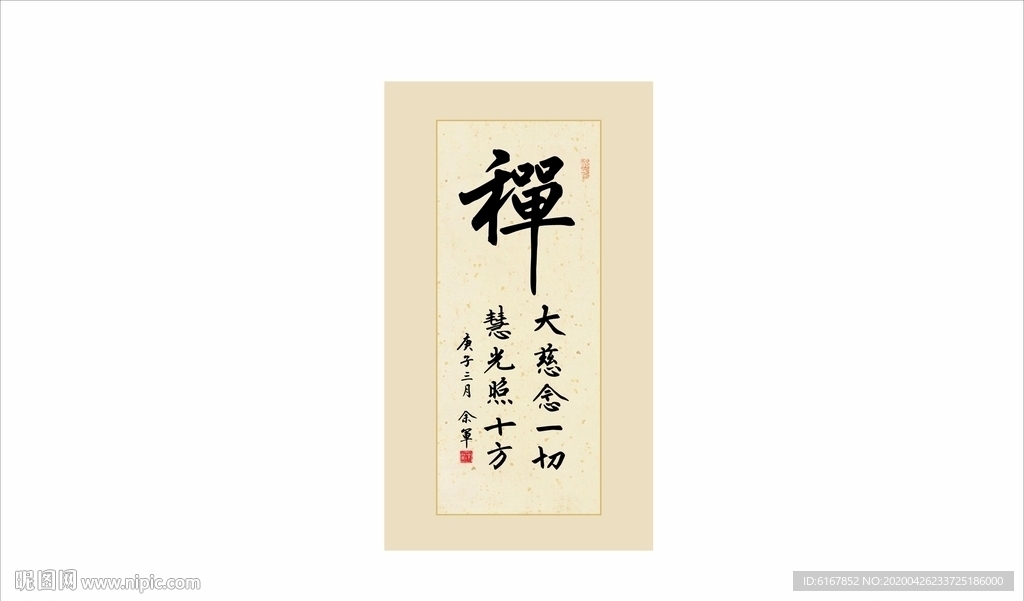 禪
大慈念一切
慧光照十方
庚子三月 余軍
昵图网 www.nipic.com
ID:6167852 NO:20200426233725186000